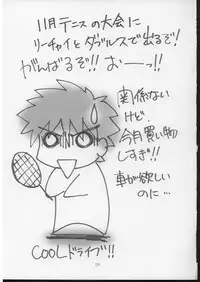 11月テニスの大会に
リーチャイとダブルスで出るぞ!
がんばるぞ!! おーっ!!
関係ない
けど、
今月買い物
しすぎ!!
車が欲しい
のに…
COOLドライブ!!